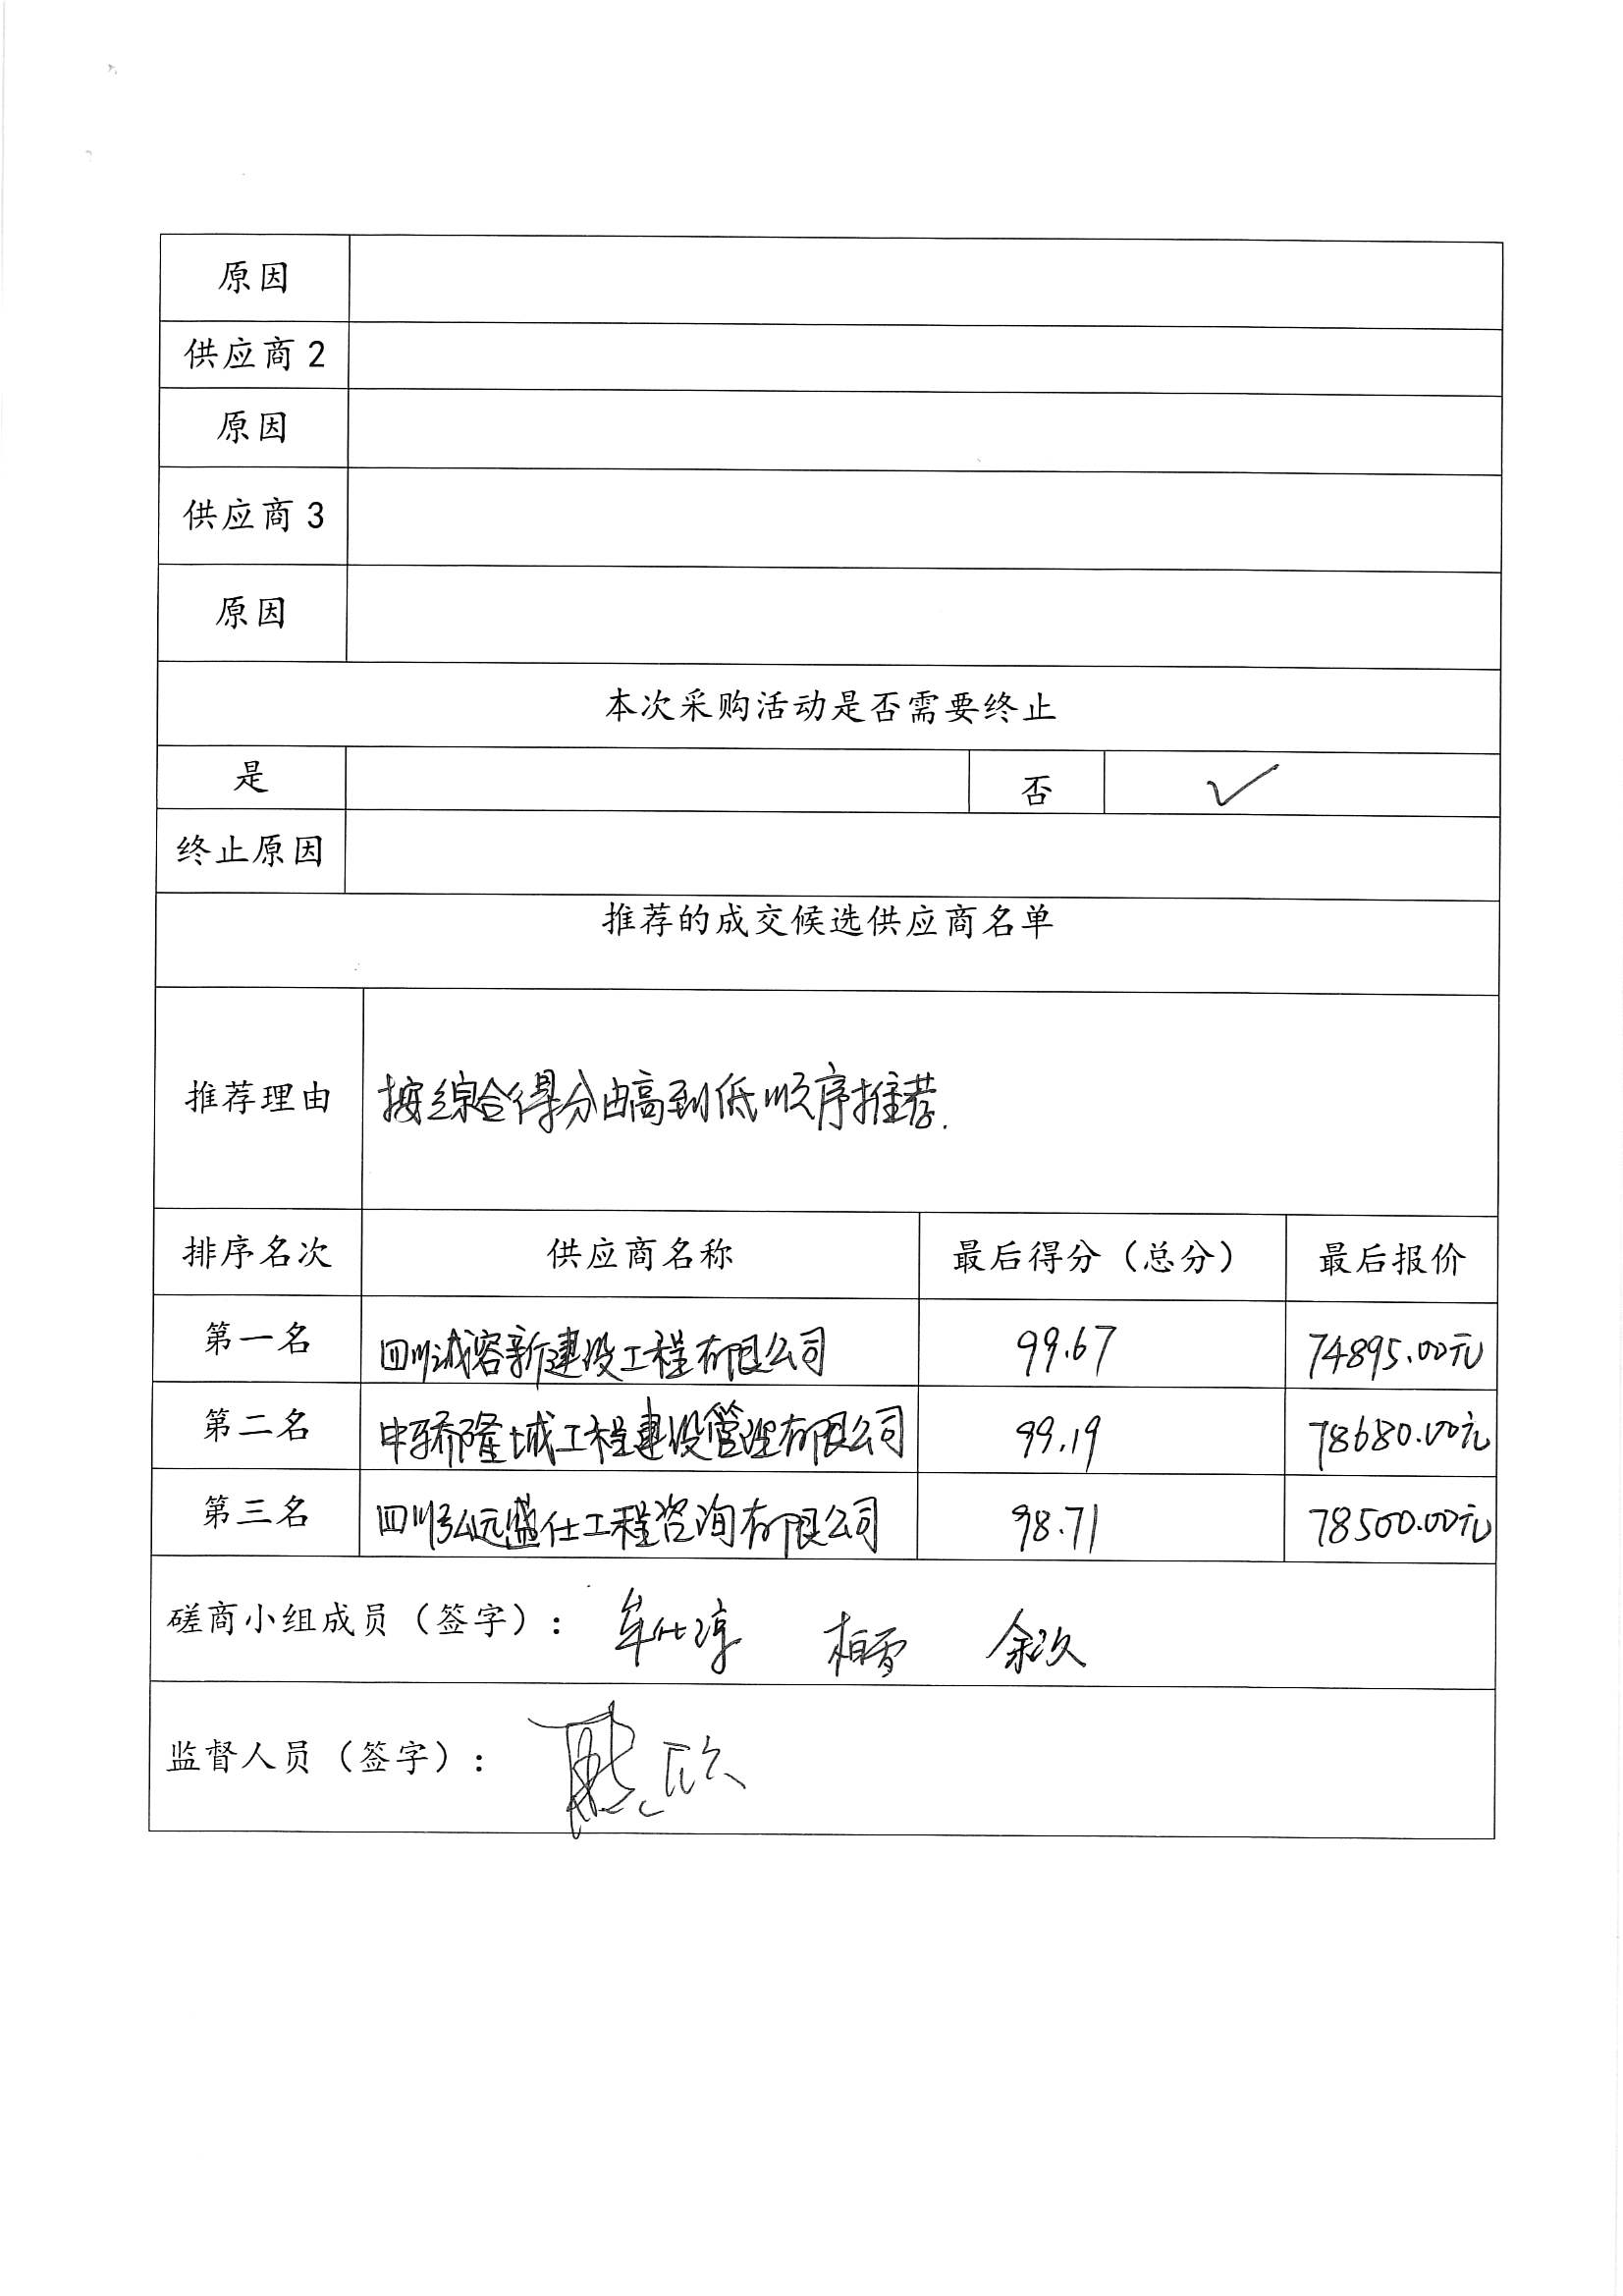 原因
供应商2
原因
供应商3
原因
本次采购活动是否需要终止
是 否 ✓
终止原因
推荐的成交候选供应商名单
推荐理由 按综合得分由高到低顺序推荐.
排序名次 供应商名称 最后得分（总分） 最后报价
第一名 四川诚容新建设工程有限公司 99.67 74895.00元
第二名 中骄隆城工程建设管理有限公司 99.19 78680.00元
第三名 四川弘远盛仕工程咨询有限公司 98.71 78500.00元
磋商小组成员（签字）： 牟仕淳 柏雪 余次
监督人员（签字）：